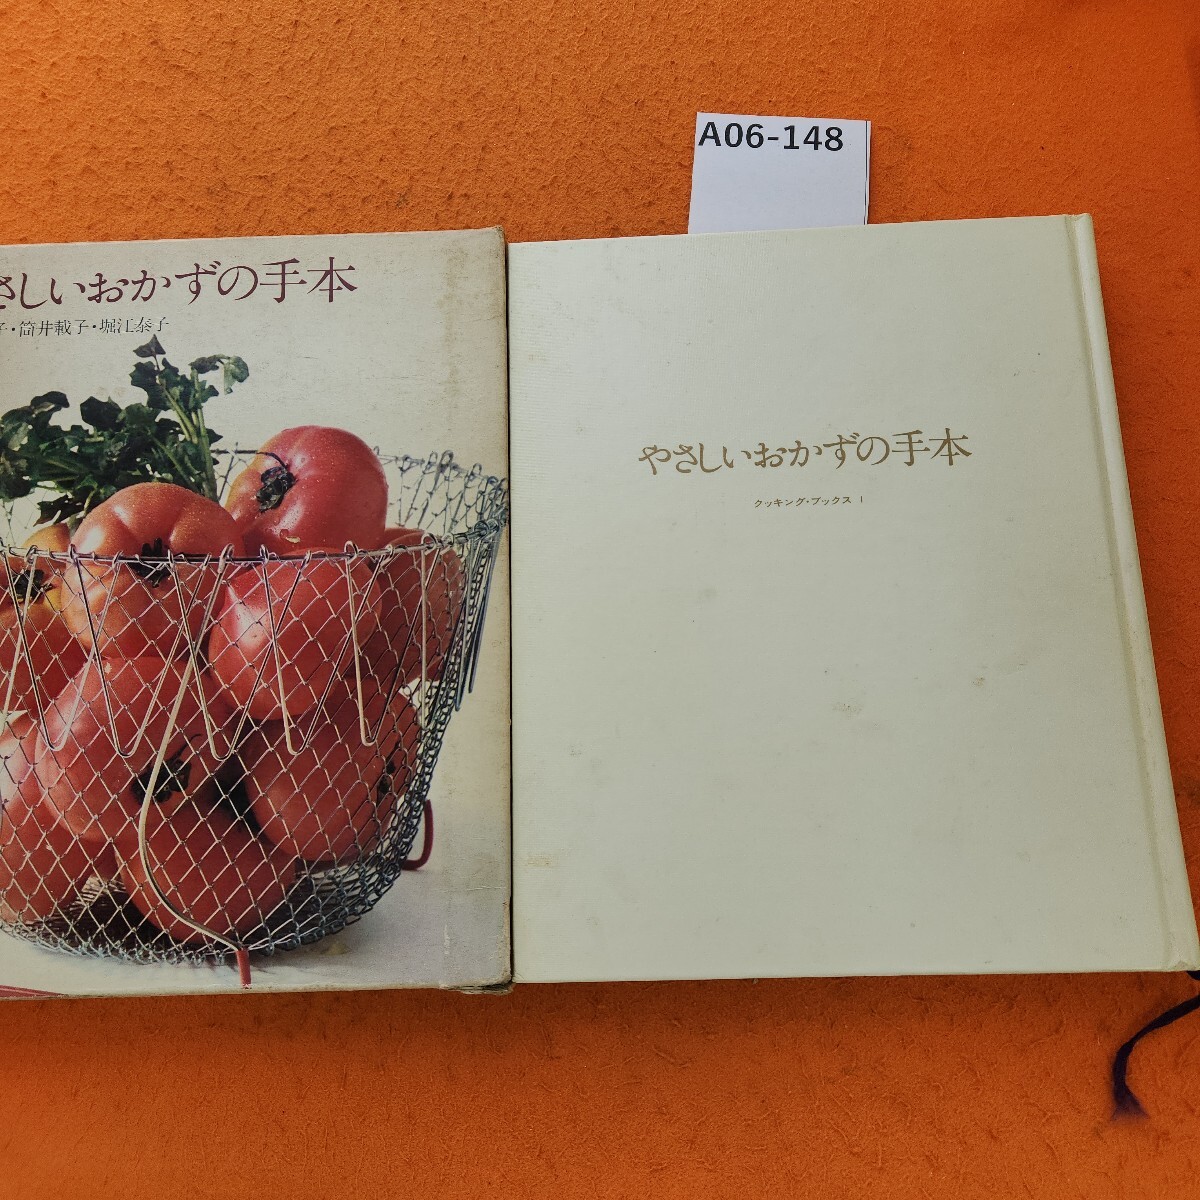 A06-148
さしいおかずの手本
子・筒井載子・堀江泰子
やさしいおかずの手本
クッキング・ブックス 1